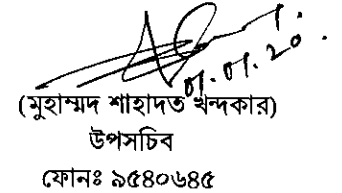 01.01.20.
(মুহাম্মদ শাহাদত খন্দকার)
উপসচিব
ফোনঃ ৯৫৪০৬৪৫